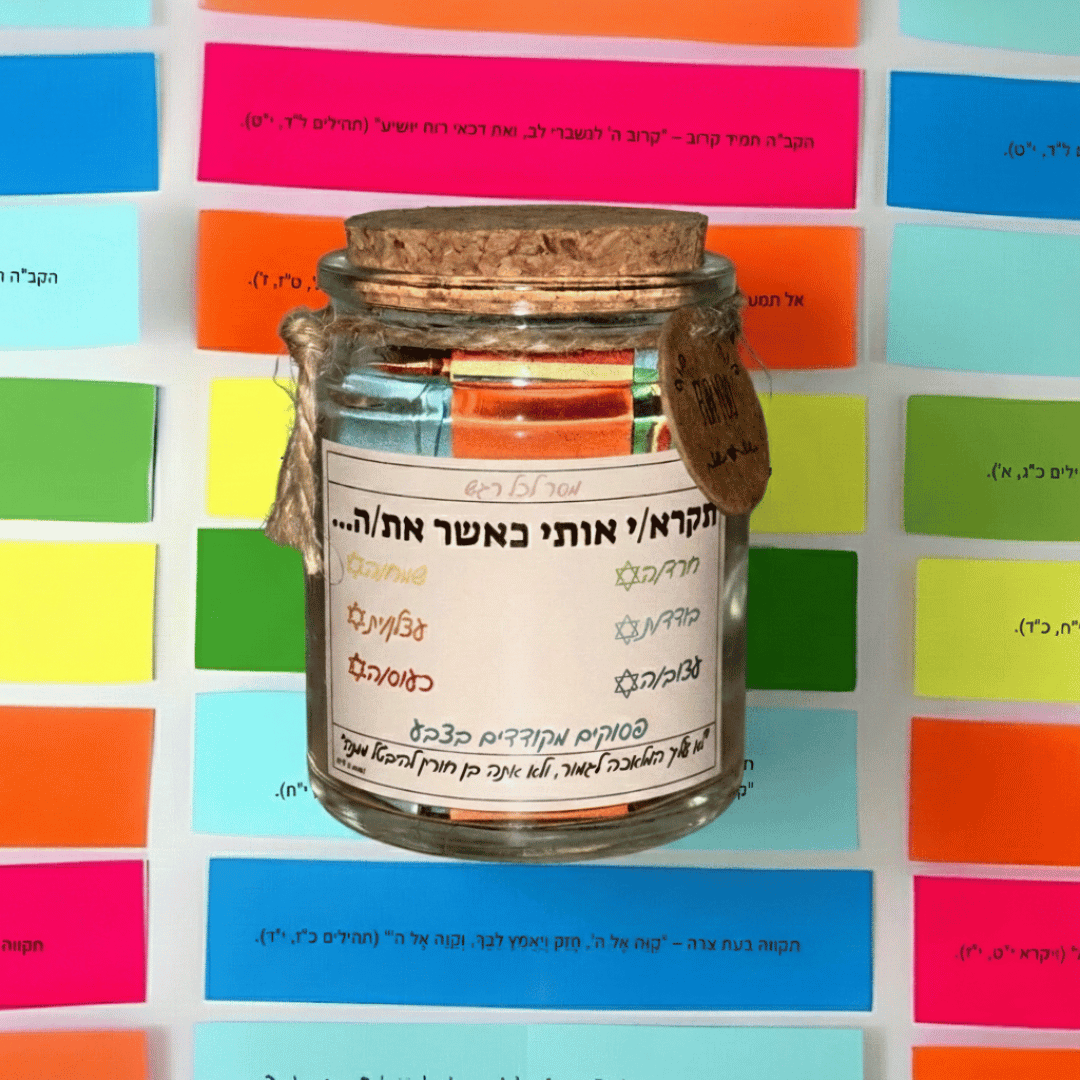 הקב"ה תמיד קרוב – "קרוב ה' לנשברי לב, ואת דכאי רוח יושיע" (תהילים ל"ד, י"ט).
ל"ד, י"ט).
הקב"ה
אל תמע
ט"ז, ז').
מסר לכל רגש
תקרא/י אותי כאשר את/ה...
חרד/ה
שמח/ה
בודד/ת
עצלן/ית
עצוב/ה
כעוס/ה
פסוקים מקודדים בצבע
"לא עליך המלאכה לגמור, ולא אתה בן חורין להיבטל ממנה"
כ"ג, א').
י"ח, כ"ד).
י"ח).
תקווה בעת צרה – "קַוֵּה אֶל ה', חֲזַק וְיַאֲמֵץ לִבֶּךָ, וְקַוֵּה אֶל ה'" (תהילים כ"ז, י"ד).
תקווה
(ויקרא י"ט, י"ז).